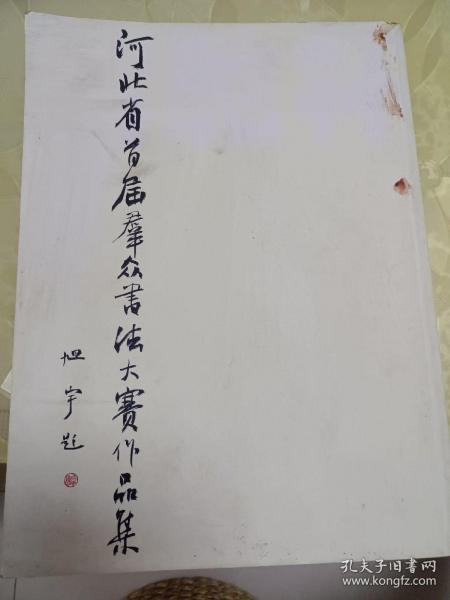 河北省首届群众书法大赛作品集
旭宇题
孔夫子旧书网
www.kongfz.com